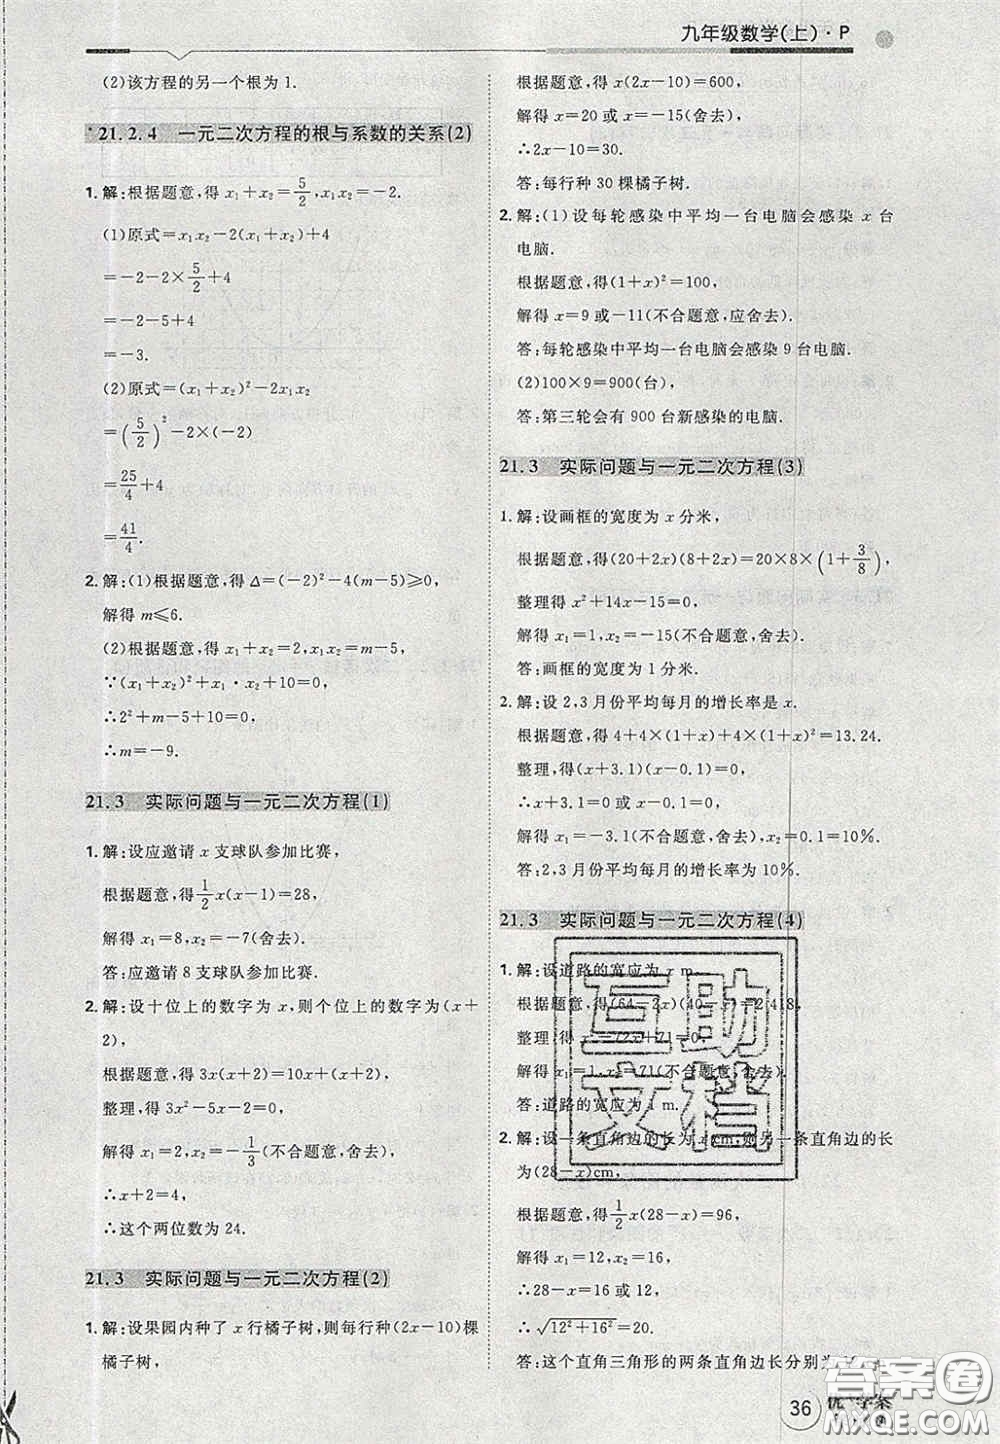 九年级数学(上)·P
(2)该方程的另一个根为1.
21.2.4 一元二次方程的根与系数的关系(2)
1.解:根据题意,得 x₁+x₂=5/2,x₁x₂=-2.
(1)原式=x₁x₂-2(x₁+x₂)+4
=-2-2×5/2+4
=-2-5+4
=-3.
(2)原式=(x₁+x₂)²-2x₁x₂
=(5/2)²-2×(-2)
=25/4+4
=41/4.
2.解:(1)根据题意,得 Δ=(-2)²-4(m-5)≥0,
解得 m≤6.
(2)根据题意,得 x₁+x₂=2,x₁x₂=m-5,
∵(x₁+x₂)²+x₁·x₂+10=0,
∴2²+m-5+10=0,
∴m=-9.
21.3 实际问题与一元二次方程(1)
1.解:设应邀请 x 支球队参加比赛,
根据题意,得 1/2x(x-1)=28,
解得 x₁=8,x₂=-7(舍去).
答:应邀请 8 支球队参加比赛.
2.解:设十位上的数字为 x,则个位上的数字为(x+
2),
根据题意,得 3x(x+2)=10x+(x+2),
整理,得 3x²-5x-2=0,
解得 x₁=2,x₂=-1/3(不合题意,舍去),
∴x+2=4,
∴这个两位数为 24.
21.3 实际问题与一元二次方程(2)
1.解:设果园内种了 x 行橘子树,则每行种(2x-10)棵
橘子树,
根据题意,得 x(2x-10)=600,
解得 x=20 或 x=-15(舍去),
∴2x-10=30.
答:每行种 30 棵橘子树.
2.解:(1)设每轮感染中平均一台电脑会感染 x 台
电脑.
根据题意,得(1+x)²=100,
解得 x=9 或-11(不合题意,应舍去).
答:每轮感染中平均一台电脑会感染 9 台电脑.
(2)100×9=900(台),
答:第三轮会有 900 台新感染的电脑.
21.3 实际问题与一元二次方程(3)
1.解:设画框的宽度为 x 分米,
根据题意,得(20+2x)(8+2x)=20×8×(1+3/8),
整理得 x²+14x-15=0,
解得 x₁=1,x₂=-15(不合题意,舍去).
答:画框的宽度为 1 分米.
2.解:设 2,3 月份平均每月的增长率是 x.
根据题意,得 4+4×(1+x)+4×(1+x)²=13.24.
整理,得(x+3.1)(x-0.1)=0,
∴x+3.1=0 或 x-0.1=0,
解得 x₁=-3.1(不合题意,舍去),x₂=0.1=10%.
答:2,3 月份平均每月的增长率为 10%.
21.3 实际问题与一元二次方程(4)
1.解:设道路的宽应为 x m.
根据题意,得(64-2x)(40-x)=2 418,
整理,得 x²-72x+71=0,
解得 x₁=1,x₂=71(不合题意,舍去).
答:道路的宽应为 1 m.
2.解:设一条直角边的长为 x cm,则另一条直角边的长
为(28-x)cm,
根据题意,得 1/2x(28-x)=96,
解得 x₁=12,x₂=16,
∴28-x=16 或 12,
∴√(12²+16²)=20.
答:这个直角三角形的两条直角边长分别为
互助
文档
答案卷
36
优学案